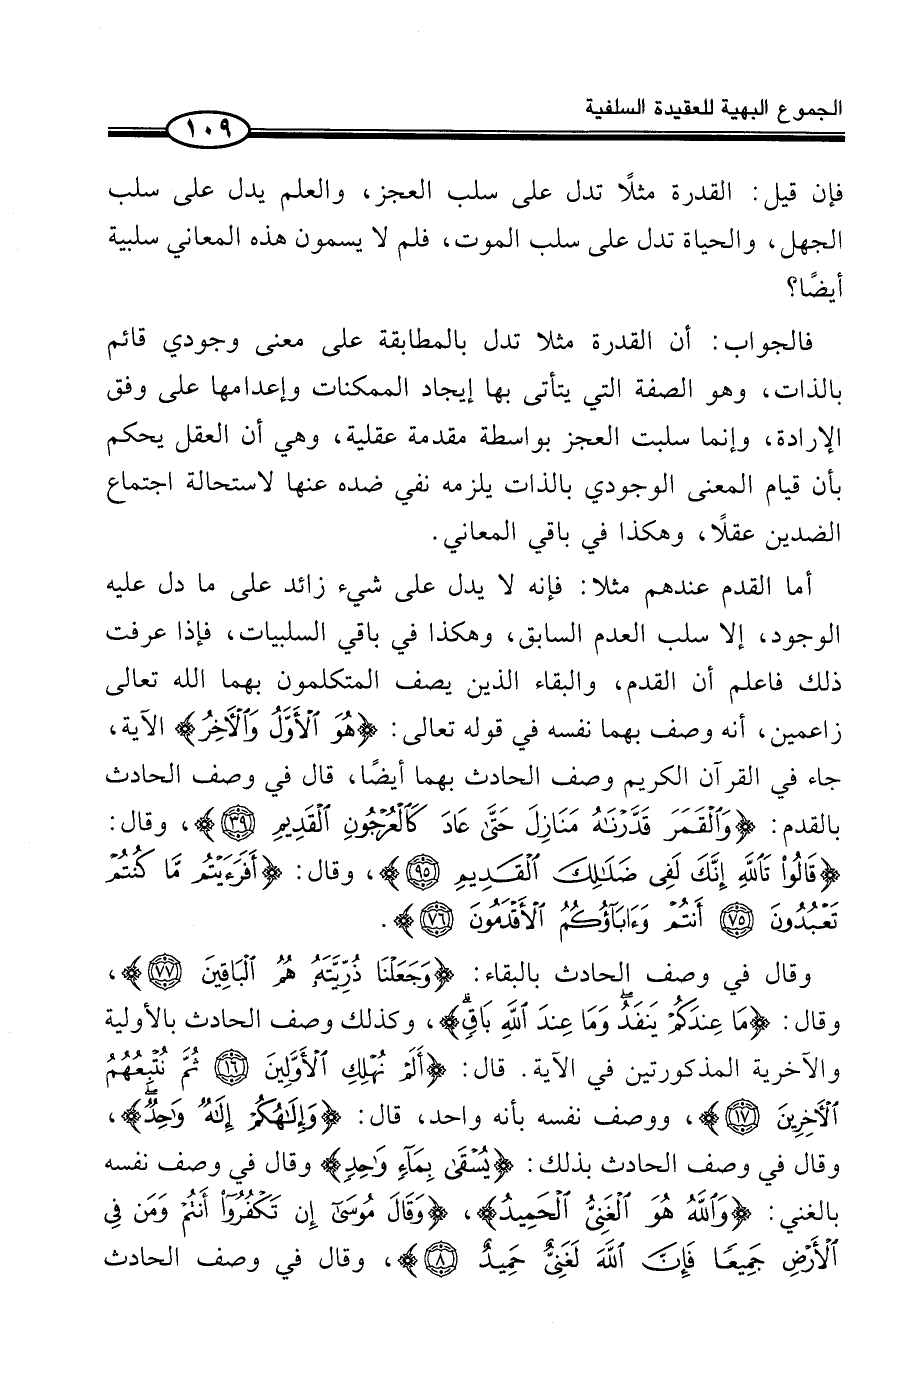 الجموع البهية للعقيدة السلفية
١٠٩
فإن قيل: القدرة مثلًا تدل على سلب العجز، والعلم يدل على سلب
الجهل، والحياة تدل على سلب الموت، فلم لا يسمون هذه المعاني سلبية
أيضًا؟
فالجواب: أن القدرة مثلا تدل بالمطابقة على معنى وجودي قائم
بالذات، وهو الصفة التي يتأتى بها إيجاد الممكنات وإعدامها على وفق
الإرادة، وإنما سلبت العجز بواسطة مقدمة عقلية، وهي أن العقل يحكم
بأن قيام المعنى الوجودي بالذات يلزمه نفي ضده عنها لاستحالة اجتماع
الضدين عقلًا، وهكذا في باقي المعاني.
أما القدم عندهم مثلا: فإنه لا يدل على شيء زائد على ما دل عليه
الوجود، إلا سلب العدم السابق، وهكذا في باقي السلبيات، فإذا عرفت
ذلك فاعلم أن القدم، والبقاء الذين يصف المتكلمون بهما الله تعالى
زاعمين، أنه وصف بهما نفسه في قوله تعالى: ﴿هُوَ ٱلْأَوَّلُ وَٱلْأَخِرُ﴾ الآية،
جاء في القرآن الكريم وصف الحادث بهما أيضًا، قال في وصف الحادث
بالقدم: ﴿وَٱلْقَمَرَ قَدَّرْنَٰهُ مَنَازِلَ حَتَّىٰ عَادَ كَٱلْعُرْجُونِ ٱلْقَدِيمِ ٣٩﴾، وقال:
﴿قَالُوا۟ تَٱللَّهِ إِنَّكَ لَفِى ضَلَٰلِكَ ٱلْقَدِيمِ ٩٥﴾، وقال: ﴿أَفَرَءَيْتُم مَّا كُنتُمْ
تَعْبُدُونَ ٧٥ أَنتُمْ وَءَابَآؤُكُمُ ٱلْأَقْدَمُونَ ٧٦﴾.
وقال في وصف الحادث بالبقاء: ﴿وَجَعَلْنَا ذُرِّيَّتَهُۥ هُمُ ٱلْبَاقِينَ ٧٧﴾،
وقال: ﴿مَا عِندَكُمْ يَنفَدُ ۖ وَمَا عِندَ ٱللَّهِ بَاقٍ ۗ﴾، وكذلك وصف الحادث بالأولية
والآخرية المذكورتين في الآية. قال: ﴿أَلَمْ نُهْلِكِ ٱلْأَوَّلِينَ ١٦ ثُمَّ نُتْبِعُهُمُ
ٱلْأَخِرِينَ ١٧﴾، ووصف نفسه بأنه واحد، قال: ﴿وَإِلَٰهُكُمْ إِلَٰهٌ وَٰحِدٌ ۖ﴾،
وقال في وصف الحادث بذلك: ﴿يُسْقَىٰ بِمَآءٍ وَٰحِدٍ﴾ وقال في وصف نفسه
بالغني: ﴿وَٱللَّهُ هُوَ ٱلْغَنِىُّ ٱلْحَمِيدُ﴾، ﴿وَقَالَ مُوسَىٰٓ إِن تَكْفُرُوٓا۟ أَنتُمْ وَمَن فِى
ٱلْأَرْضِ جَمِيعًا فَإِنَّ ٱللَّهَ لَغَنِىٌّ حَمِيدٌ ٨﴾، وقال في وصف الحادث